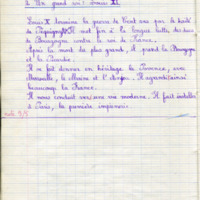 Un grand roi : Louis XI.
Louis X termine la guerre de Cent ans par le traité
de Picquigny. Il met fin à la longue lutte des ducs
de Bourgogne contre le roi de France.
Après la mort du plus grand, il prend la Bourgogne
et la Picardie.
Il se fait donner en héritage la Provence, avec
Marseille, le Maine et l'Anjou. Il agrandit ainsi
beaucoup la France.
Il nous conduit vers une vie moderne. Il fait installer
à Paris, la première imprimerie.